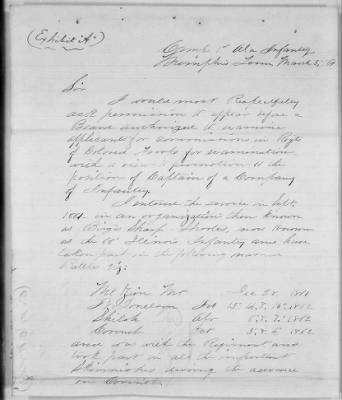 (Exhibit "A")
Camp 1st Ala Infantry
Memphis Tenn March 3,
Sir
I would most Respectfully
ask permission to appear before a
Board authorized to examine
applicants for commissions in Regts
of Colored Troops for examination
with a view to promotion to the
position of Captain of a Company
of Infantry
I entered the service in Sept
1861. in an organization then known
as Birges Sharp Shooters, now known
as the 66" Illinois Infantry and have
taken part in the following
Battles viz:
Mt Zion Mo Dec 28, 1861
Ft. Donelson Feb 15, 1862
Shiloh Apr 6, 7, 1862
Corinth Oct 3, 4, 5, 1862
and was with the Regiment and
took part in all the important
Skirmishes during the advance
on Corinth